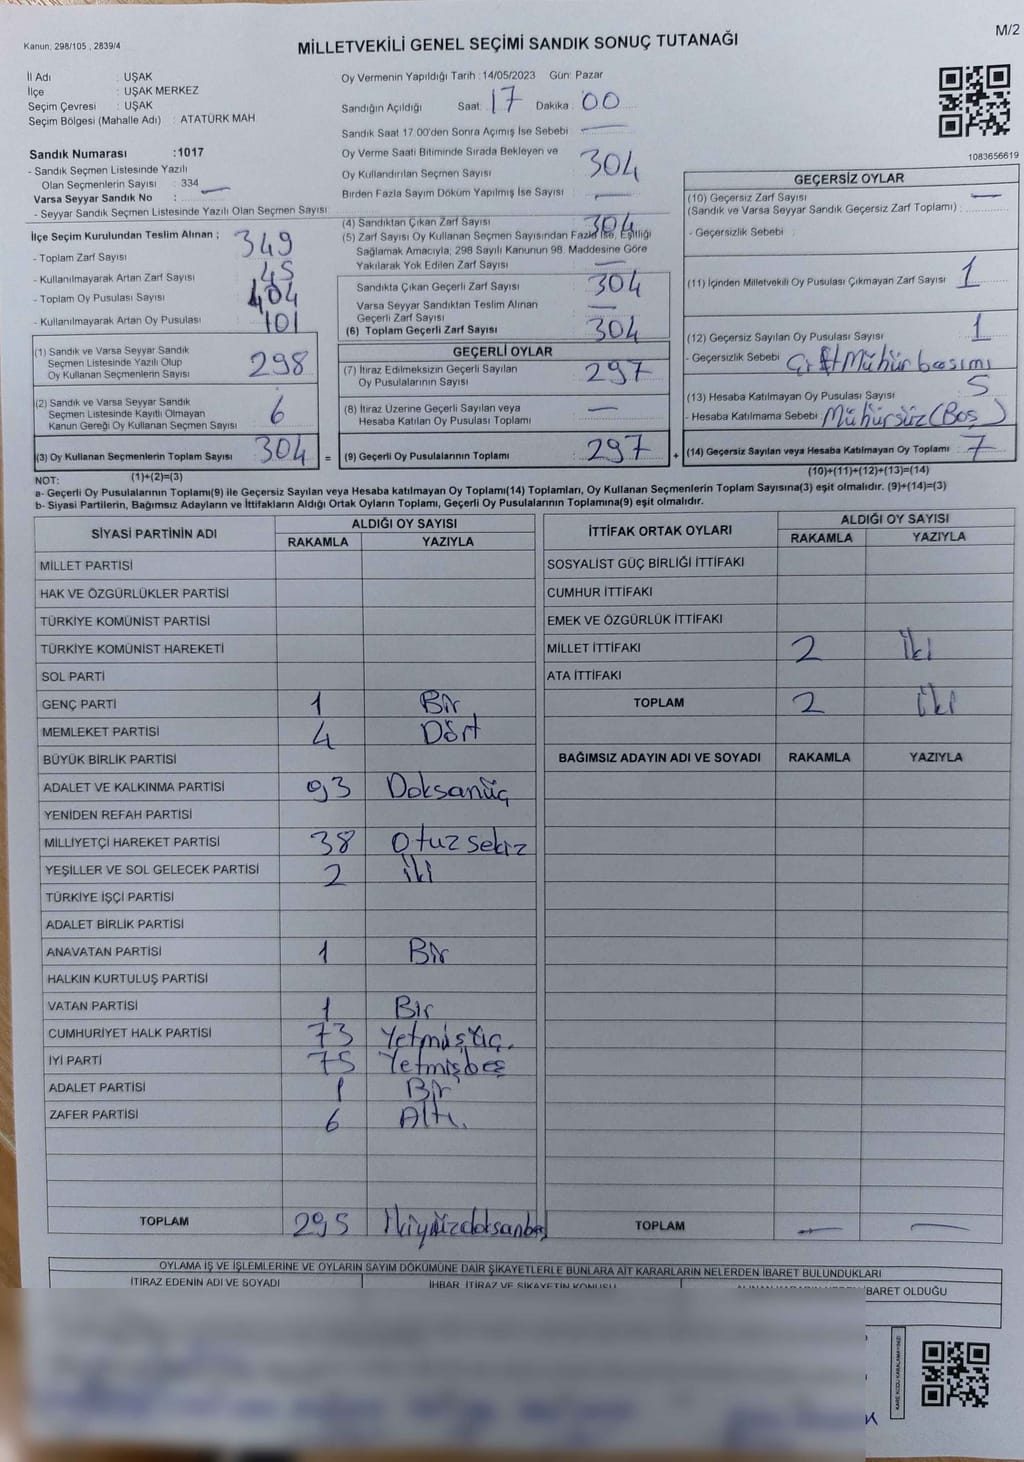 Kanun, 298/105 , 2839/4
MİLLETVEKİLİ GENEL SEÇİMİ SANDIK SONUÇ TUTANAĞI
M/2
İl Adı : UŞAK
İlçe : UŞAK MERKEZ
Seçim Çevresi : UŞAK
Seçim Bölgesi (Mahalle Adı) : ATATÜRK MAH
Sandık Numarası :1017
- Sandık Seçmen Listesinde Yazılı
Olan Seçmenlerin Sayısı : 334
Varsa Seyyar Sandık No : —
- Seyyar Sandık Seçmen Listesinde Yazılı Olan Seçmen Sayısı
İlçe Seçim Kurulundan Teslim Alınan ;
- Toplam Zarf Sayısı 349
- Kullanılmayarak Artan Zarf Sayısı 45
- Toplam Oy Pusulası Sayısı 404
- Kullanılmayarak Artan Oy Pusulası 101
(1) Sandık ve Varsa Seyyar Sandık
Seçmen Listesinde Yazılı Olup
Oy Kullanan Seçmenlerin Sayısı 298
(2) Sandık ve Varsa Seyyar Sandık
Seçmen Listesinde Kayıtlı Olmayan
Kanun Gereği Oy Kullanan Seçmen Sayısı 6
(3) Oy Kullanan Seçmenlerin Toplam Sayısı 304 =
(1)+(2)=(3)
Oy Vermenin Yapıldığı Tarih :14/05/2023 Gün: Pazar
Sandığın Açıldığı Saat: 17 Dakika : 00
Sandık Saat 17:00'den Sonra Açımış İse Sebebi —
Oy Verme Saati Bitiminde Sırada Bekleyen ve
Oy Kullandırılan Seçmen Sayısı 304
Birden Fazla Sayım Döküm Yapılmış İse Sayısı —
(4) Sandıktan Çıkan Zarf Sayısı 304
(5) Zarf Sayısı Oy Kullanan Seçmen Sayısından Fazla İse, Eşitliği
Sağlamak Amacıyla, 298 Sayılı Kanunun 98. Maddesine Göre
Yakılarak Yok Edilen Zarf Sayısı —
Sandıkta Çıkan Geçerli Zarf Sayısı 304
Varsa Seyyar Sandıktan Teslim Alınan
Geçerli Zarf Sayısı —
(6) Toplam Geçerli Zarf Sayısı 304
GEÇERLİ OYLAR
(7) İtiraz Edilmeksizin Geçerli Sayılan
Oy Pusulalarının Sayısı 297
(8) İtiraz Üzerine Geçerli Sayılan veya
Hesaba Katılan Oy Pusulası Toplamı —
(9) Geçerli Oy Pusulalarının Toplamı 297 +
1083656619
GEÇERSİZ OYLAR
(10) Geçersiz Zarf Sayısı —
(Sandık ve Varsa Seyyar Sandık Geçersiz Zarf Toplamı) :
- Geçersizlik Sebebi :
(11) İçinden Milletvekili Oy Pusulası Çıkmayan Zarf Sayısı 1
(12) Geçersiz Sayılan Oy Pusulası Sayısı 1
- Geçersizlik Sebebi : Çift Mühür basımı
(13) Hesaba Katılmayan Oy Pusulası Sayısı 5
- Hesaba Katılmama Sebebi : Mühürsüz (Boş)
(14) Geçersiz Sayılan veya Hesaba Katılmayan Oy Toplamı : 7
(10)+(11)+(12)+(13)=(14)
NOT:
a- Geçerli Oy Pusulalarının Toplamı(9) ile Geçersiz Sayılan veya Hesaba katılmayan Oy Toplamı(14) Toplamları, Oy Kullanan Seçmenlerin Toplam Sayısına(3) eşit olmalıdır. (9)+(14)=(3)
b- Siyasi Partilerin, Bağımsız Adayların ve İttifakların Aldığı Ortak Oyların Toplamı, Geçerli Oy Pusulalarının Toplamına(9) eşit olmalıdır.
SİYASİ PARTİNİN ADI ALDIĞI OY SAYISI
RAKAMLA YAZIYLA
MİLLET PARTİSİ
HAK VE ÖZGÜRLÜKLER PARTİSİ
TÜRKİYE KOMÜNİST PARTİSİ
TÜRKİYE KOMÜNİST HAREKETİ
SOL PARTİ
GENÇ PARTİ 1 Bir
MEMLEKET PARTİSİ 4 Dört
BÜYÜK BİRLİK PARTİSİ
ADALET VE KALKINMA PARTİSİ 93 Doksanüç
YENİDEN REFAH PARTİSİ
MİLLİYETÇİ HAREKET PARTİSİ 38 Otuz sekiz
YEŞİLLER VE SOL GELECEK PARTİSİ 2 iki
TÜRKİYE İŞÇİ PARTİSİ
ADALET BİRLİK PARTİSİ
ANAVATAN PARTİSİ 1 Bir
HALKIN KURTULUŞ PARTİSİ
VATAN PARTİSİ 1 Bir
CUMHURİYET HALK PARTİSİ 73 Yetmişüç.
İYİ PARTİ 75 Yetmişbeş
ADALET PARTİSİ 1 Bir
ZAFER PARTİSİ 6 Altı.
TOPLAM 295 İkiyüzdoksanbeş
İTTİFAK ORTAK OYLARI ALDIĞI OY SAYISI
RAKAMLA YAZIYLA
SOSYALİST GÜÇ BİRLİĞİ İTTİFAKI
CUMHUR İTTİFAKI
EMEK VE ÖZGÜRLÜK İTTİFAKI
MİLLET İTTİFAKI 2 iki
ATA İTTİFAKI
TOPLAM 2 iki
BAĞIMSIZ ADAYIN ADI VE SOYADI RAKAMLA YAZIYLA
TOPLAM — —
OYLAMA İŞ VE İŞLEMLERİNE VE OYLARIN SAYIM DÖKÜMÜNE DAİR ŞİKAYETLERLE BUNLARA AİT KARARLARIN NELERDEN İBARET BULUNDUKLARI
İTİRAZ EDENİN ADI VE SOYADI
İHBAR, İTİRAZ VE ŞİKAYETİN KONUSU
İBARET OLDUĞU
KARE KODU KARALAMAYINIZ!